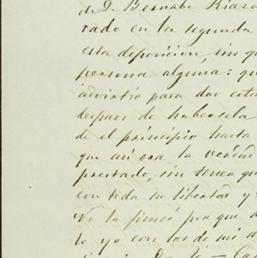 de D. Bernabe
rado en la segunda
esta deposicion, sin que
persona alguna: que
advirtio para dar
despues de habersela
de el principio hasta
que asi era la verdad
prestado, sin tener que
con toda su libertad y
No la firmó por que
lo yo con los de mi